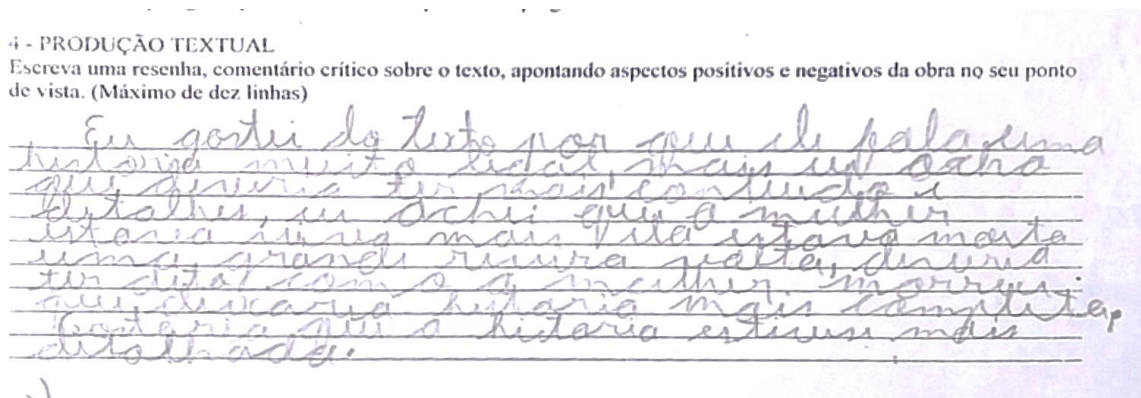 4 - PRODUÇÃO TEXTUAL
Escreva uma resenha, comentário crítico sobre o texto, apontando aspectos positivos e negativos da obra no seu ponto
de vista. (Máximo de dez linhas)
Eu gostei do texto por que ele fala uma
historia muito legal, mais eu acho
que deveria ter mais conteudo e
detalhes, eu achei que a mulher
estaria viva mais ela estava morta
uma grande revira volta, deveria
ter dito como a mulher morreu
que deixaria historia mais completa,
Gostaria que a historia estivese mais
detalhada.